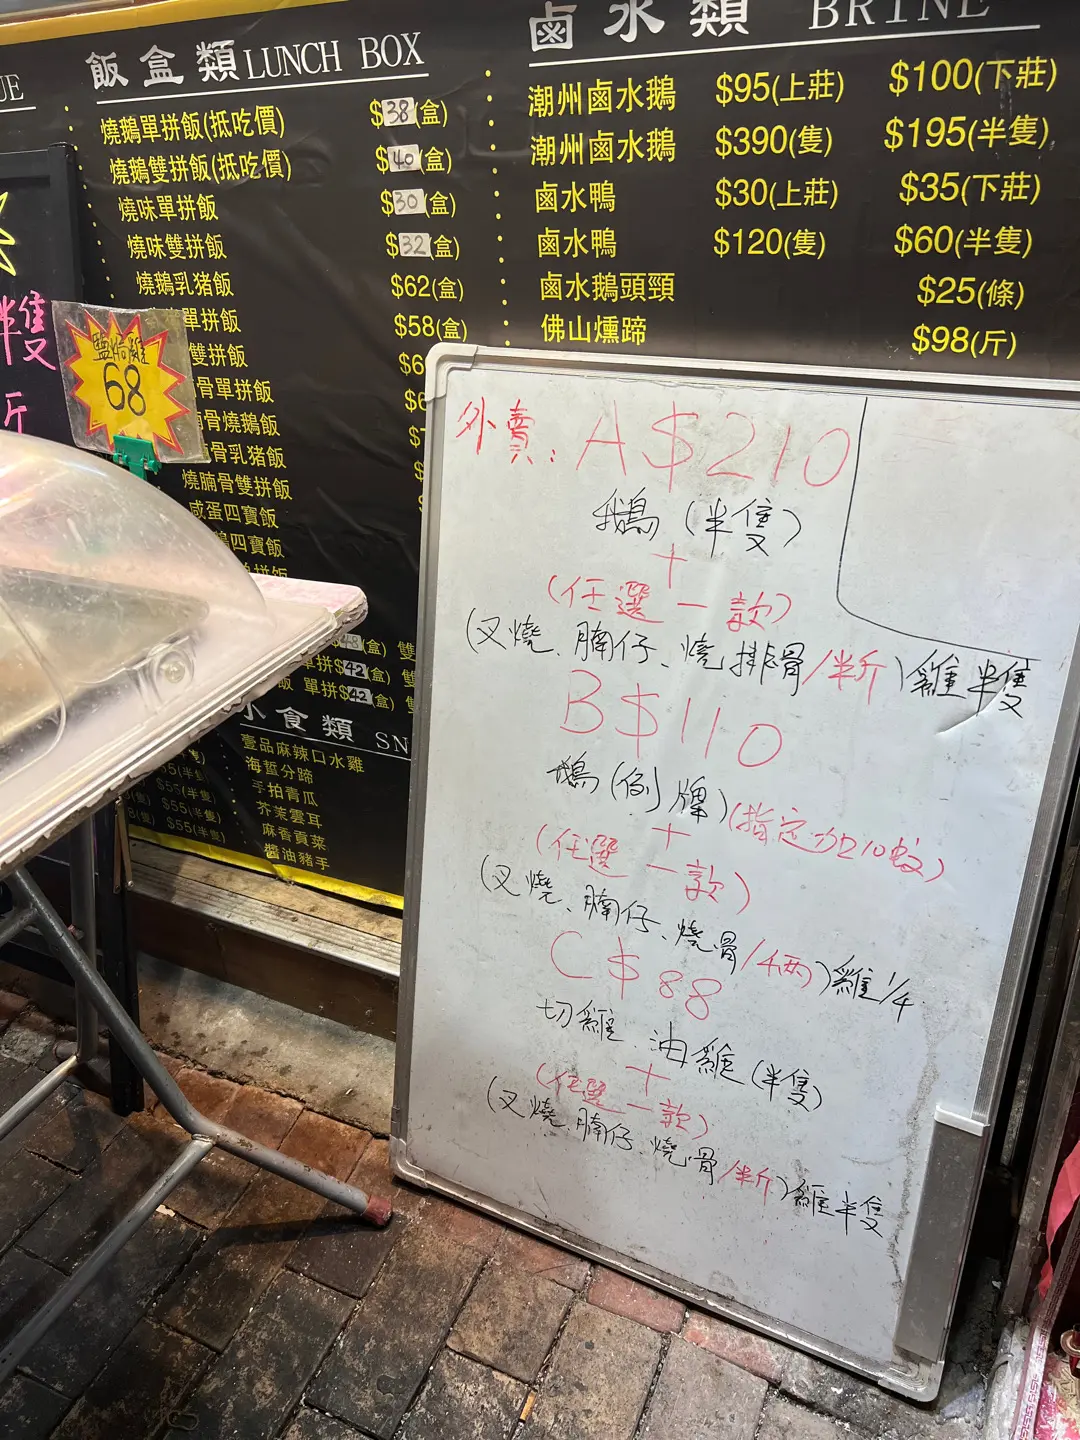 飯盒類 LUNCH BOX
燒鵝單拼飯(抵吃價) $38(盒)
燒鵝雙拼飯(抵吃價) $40(盒)
燒味單拼飯 $30(盒)
燒味雙拼飯 $32(盒)
燒鵝乳猪飯 $62(盒)
單拼飯 $58(盒)
雙拼飯
骨單拼飯
骨燒鵝飯
骨乳猪飯
燒腩骨雙拼飯
咸蛋四寶飯
鴨四寶飯
(盒) 雙
單拼$42(盒) 雙
飯 單拼$42(盒) 雙
小食類 SN
壹品麻辣口水雞
海蜇分蹄
手拍青瓜
芥茉雲耳
麻香貢菜
醬油豬手
$55(半隻)
$55(半隻)
$55(半隻)
鹵水類 BRINE
潮州鹵水鵝 $95(上莊) $100(下莊)
潮州鹵水鵝 $390(隻) $195(半隻)
鹵水鴨 $30(上莊) $35(下莊)
鹵水鴨 $120(隻) $60(半隻)
鹵水鵝頭頸 $25(條)
佛山燻蹄 $98(斤)
半隻
斤
68
外賣: A $210
鵝 (半隻)
+
(任選一款)
(叉燒、腩仔、燒排骨/半斤) 雞半隻
B $110
鵝 (例)牌 (指定加10蚊)
+
(任選一款)
(叉燒、腩仔、燒骨/4兩) 雞1/4
C $88
切雞、油雞 (半隻)
+
(任選一款)
(叉燒、腩仔、燒骨/半斤) 雞半隻